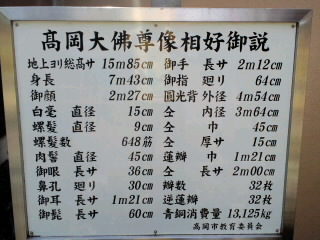 高岡大佛尊像相好御説
地上ヨリ総高サ 15m85cm
身長 7m43cm
御顔 2m27cm
白毫 直径 15cm
螺髪 直径 9cm
螺髪数 648筋
肉髻 直径 45cm
御眼 長サ 36cm
鼻孔 廻リ 30cm
御耳 長サ 1m21cm
御髭 長サ 60cm
御手 長サ 2m12cm
御指 廻リ 64cm
圓光背 外径 4m54cm
仝 内径 3m64cm
仝 巾 45cm
仝 厚サ 15cm
蓮瓣 巾 1m21cm
仝 長サ 2m00cm
瓣数 32枚
逆蓮瓣 32枚
青銅消費量 13,125kg
高岡市教育委員会